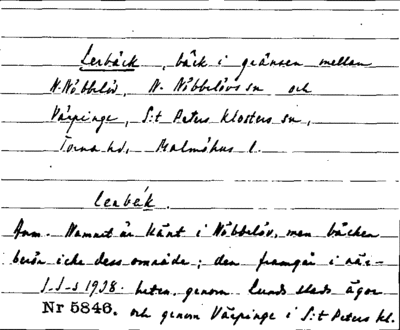 Lerbäck, bäck i gränsen mellan
N. Nöbbelöv, N. Nöbbelövs sn och
Värpinge, S:t Peters klosters sn,
Torna hd, Malmöhus l.
lerbék.
Anm. Namnet är känt i Nöbbelöv, men bäcken
berör icke dess område; den framgår i när-
heten, genom Lunds stads ägor
1938.
Nr 5846. och genom Värpinge i S:t Peters kl.